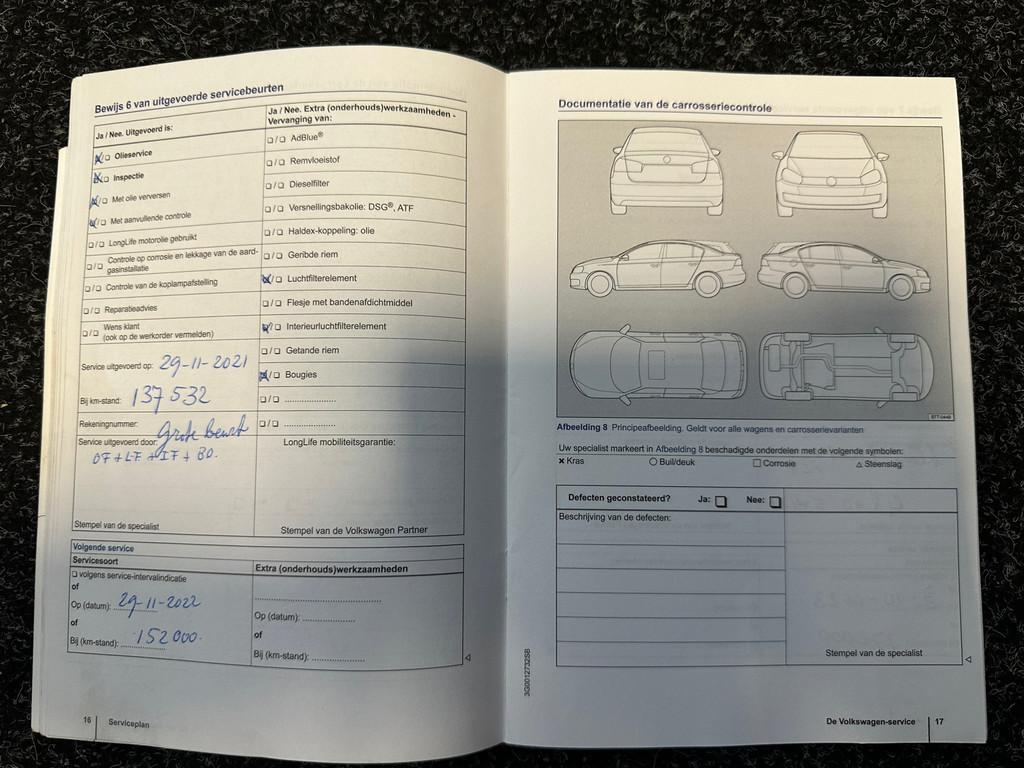 Bewijs 6 van uitgevoerde servicebeurten
Ja / Nee. Uitgevoerd is:
☒/☐ Olieservice
☒/☐ Inspectie
☒/☐ Met olie verversen
☒/☐ Met aanvullende controle
☐/☐ LongLife motorolie gebruikt
☐/☐ Controle op corrosie en lekkage van de aard-
gasinstallatie
☐/☐ Controle van de koplampafstelling
☐/☐ Reparatieadvies
☐/☐ Wens klant
(ook op de werkorder vermelden)
Service uitgevoerd op: 29-11-2021
Bij km-stand: 137 532
Rekeningnummer: Grote Beurt
Service uitgevoerd door:
OF + LF + IF + BO.
Stempel van de specialist
Ja / Nee. Extra (onderhouds)werkzaamheden -
Vervanging van:
☐/☐ AdBlue®
☐/☐ Remvloeistof
☐/☐ Dieselfilter
☐/☐ Versnellingsbakolie: DSG®, ATF
☐/☐ Haldex-koppeling: olie
☐/☐ Geribde riem
☒/☐ Luchtfilterelement
☐/☐ Flesje met bandenafdichtmiddel
☒/☐ Interieurluchtfilterelement
☐/☐ Getande riem
☒/☐ Bougies
☐/☐ ....................
☐/☐ ....................
LongLife mobiliteitsgarantie:
Stempel van de Volkswagen Partner
Volgende service
Servicesoort
☐ volgens service-intervalindicatie
of
Op (datum): 29-11-2022
of
Bij (km-stand): 152 000.
Extra (onderhouds)werkzaamheden
Op (datum): ................
of
Bij (km-stand): ................
16 Serviceplan
Documentatie van de carrosseriecontrole
B7T-0449
Afbeelding 8 Principeafbeelding. Geldt voor alle wagens en carrosserievarianten
Uw specialist markeert in Afbeelding 8 beschadigde onderdelen met de volgende symbolen:
× Kras ○ Buil/deuk □ Corrosie △ Steenslag
Defecten geconstateerd? Ja: ☐ Nee: ☐
Beschrijving van de defecten:
Stempel van de specialist
3G0012732SB
De Volkswagen-service 17